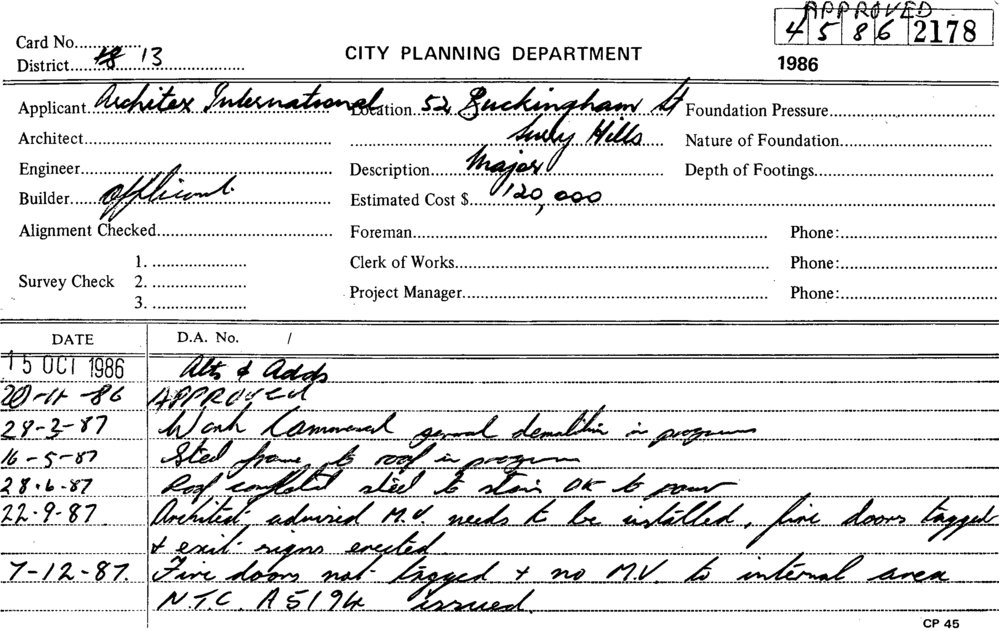 APPROVED
4 5 8 6 2178
Card No.
District 18 13
CITY PLANNING DEPARTMENT
1986
Applicant Architex International Location 52 Buckingham St Foundation Pressure
Architect Surry Hills Nature of Foundation
Engineer Description Major Depth of Footings
Builder applicant Estimated Cost $ 120,000
Alignment Checked Foreman Phone:
1. Clerk of Works Phone:
Survey Check 2.
Project Manager Phone:
3.
DATE D.A. No. /
15 OCT 1986 Alts & Adds
20-11-86 APPROVED
29-3-87 Work Commenced general demolition in progress
16-5-87 Steel frame to roof in progress
28.6.87 Roof completed steel to stairs OK to pour
22.9.87 Architect advised M.V. needs to be installed, fire doors tagged
& exit signs erected
7-12-87. Fire doors not tagged + no M.V. to internal area
N.T.C. A5194 issued.
CP 45